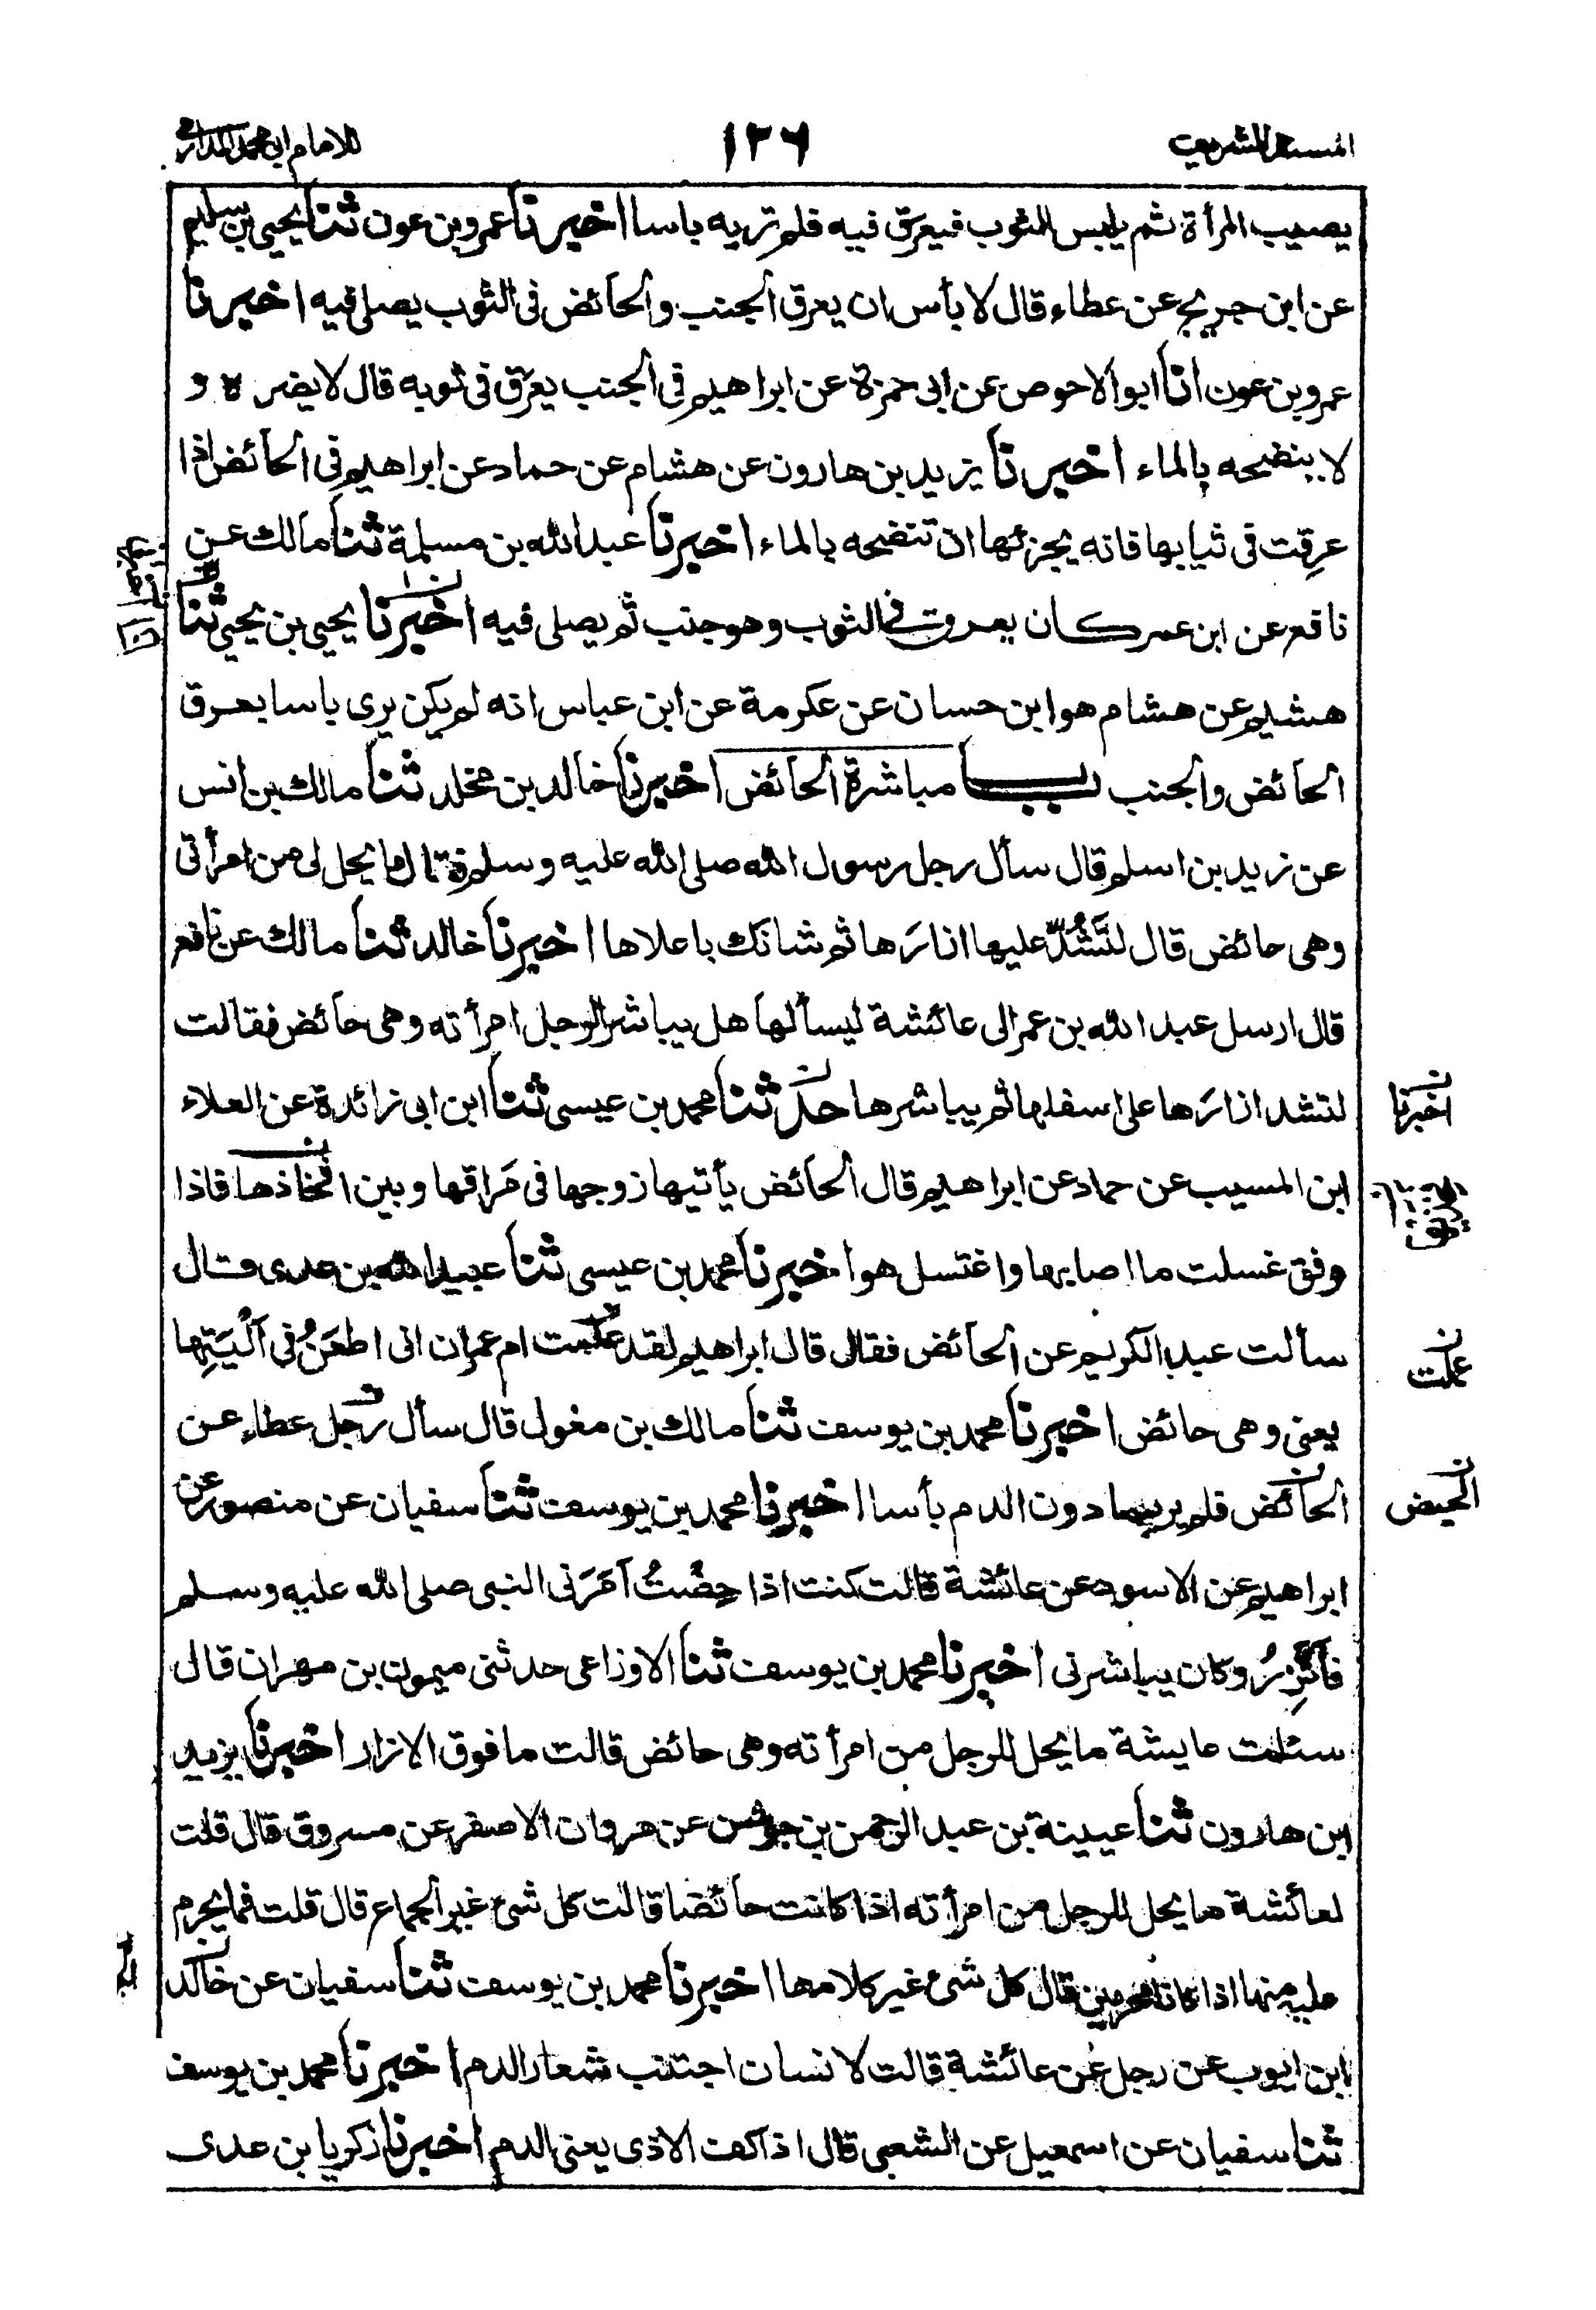 المسند الشريف ١٣٦ للامام ابي محمد الدارمي
يصيب المرأة ثم يلبس الثوب فيعرق فيه فلم تر به باسا اخبرنا عمرو بن عون ثنا يحيى بن سليم
عن ابن جريج عن عطاء قال لا بأس ان يعرق الجنب والحائض في الثوب يصلى فيه اخبرنا
عمرو بن عون انا ابو الاحوص عن ابى حمزة عن ابراهيم في الجنب يعرق في ثوبه قال لا يضره و
لا ينضحه بالماء اخبرنا يزيد بن هارون عن هشام عن حماد عن ابراهيم في الحائض اذا
عرقت في ثيابها فانه يجزئها ان تنضحه بالماء اخبرنا عبد الله بن مسلمة ثنا مالك عن
نافع عن ابن عمر كان يعرق في الثوب وهو جنب ثم يصلى فيه اخبرنا يحيى بن يحيى ثنا
هشيم عن هشام هو ابن حسان عن عكرمة عن ابن عباس انه لم يكن يرى باسا بعرق
الحائض والجنب باب مباشرة الحائض اخبرنا خالد بن مخلد ثنا مالك بن انس
عن زيد بن اسلم قال سأل رجل رسول الله صلى الله عليه وسلم قال ما يحل لى من امرأتى
وهى حائض قال لتَشُدّ عليها ازارَها ثم شانك باعلاها اخبرنا خالد ثنا مالك عن نافع
قال ارسل عبد الله بن عمر الى عائشة ليسألها هل يباشر الرجل امرأته وهى حائض فقالت
لتشد ازارَها على اسفلها ثم يباشرها حدثنا محمد بن عيسى ثنا ابن ابى زائدة عن العلاء
اخبرنا
ابن المسيب عن حماد عن ابراهيم قال الحائض يأتيها زوجها فى مَراقها وبين افخاذها فاذا
دفق غسلت ما اصابها واغتسل هو اخبرنا محمد بن عيسى ثنا عبيد الله بن عدى قال
سألت عبد الكريم عن الحائض فقال قال ابراهيم لقد علمت ام عمران انى اطعَنُ في اَلْيَتِها
علمت
يعنى وهى حائض اخبرنا محمد بن يوسف ثنا مالك بن مغول قال سأل رجل عطاء عن
الحائض فلم ير بما دون الدم بأسا اخبرنا محمد بن يوسف ثنا سفيان عن منصور عن
الحيض
ابراهيم عن الاسود عن عائشة قالت كنت اذا حِضْتُ اَمَرَنى النبى صلى الله عليه وسلم
فأتَّزِرُ وكان يباشرنى اخبرنا محمد بن يوسف ثنا الاوزاعى حدثنى ميمون بن مهران قال
سئلت عايشة ما يحل للرجل من امرأته وهى حائض قالت ما فوق الازار اخبرنا يزيد
ابن هارون ثنا عيينة بن عبد الرحمن بن جوشن عن مروان الاصفر عن مسروق قال قلت
لعائشة ما يحل للرجل من امرأته اذا كانت حائضا قالت كل شئ غير الجماع قال قلت فما يحرم
عليه منها اذا كانا محرمين قال كل شئ غير كلامها اخبرنا محمد بن يوسف ثنا سفيان عن خالد
ابن ايوب عن رجل عن عائشة قالت لانسان اجتنب شعار الدم اخبرنا محمد بن يوسف
ثنا سفيان عن اسمعيل عن الشعبى قال اذا كف الاذى يعنى الدم اخبرنا زكريا بن عدى